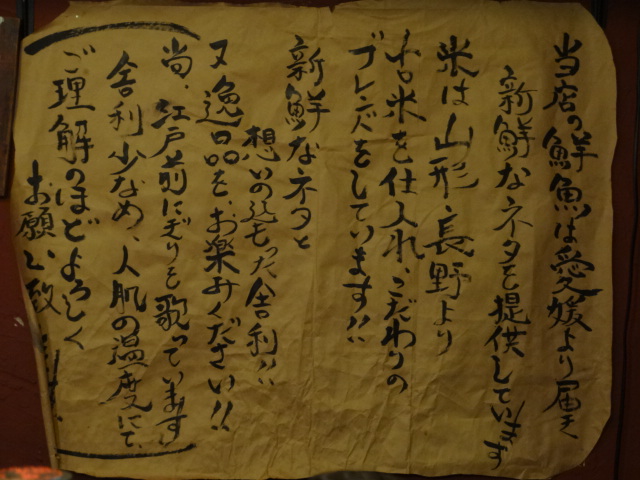 当店の鮮魚は愛媛より届き
新鮮なネタを提供しています
米は山形、長野より
古米を仕入れ、こだわりの
ブレンドをしています!!
新鮮なネタと
想いの込もった舎利!!
又逸品を、お楽みください!!
尚、江戸前にぎりを歌っています
舎利少なめ、人肌の温度にて、
ご理解のほどよろしく
お願い致